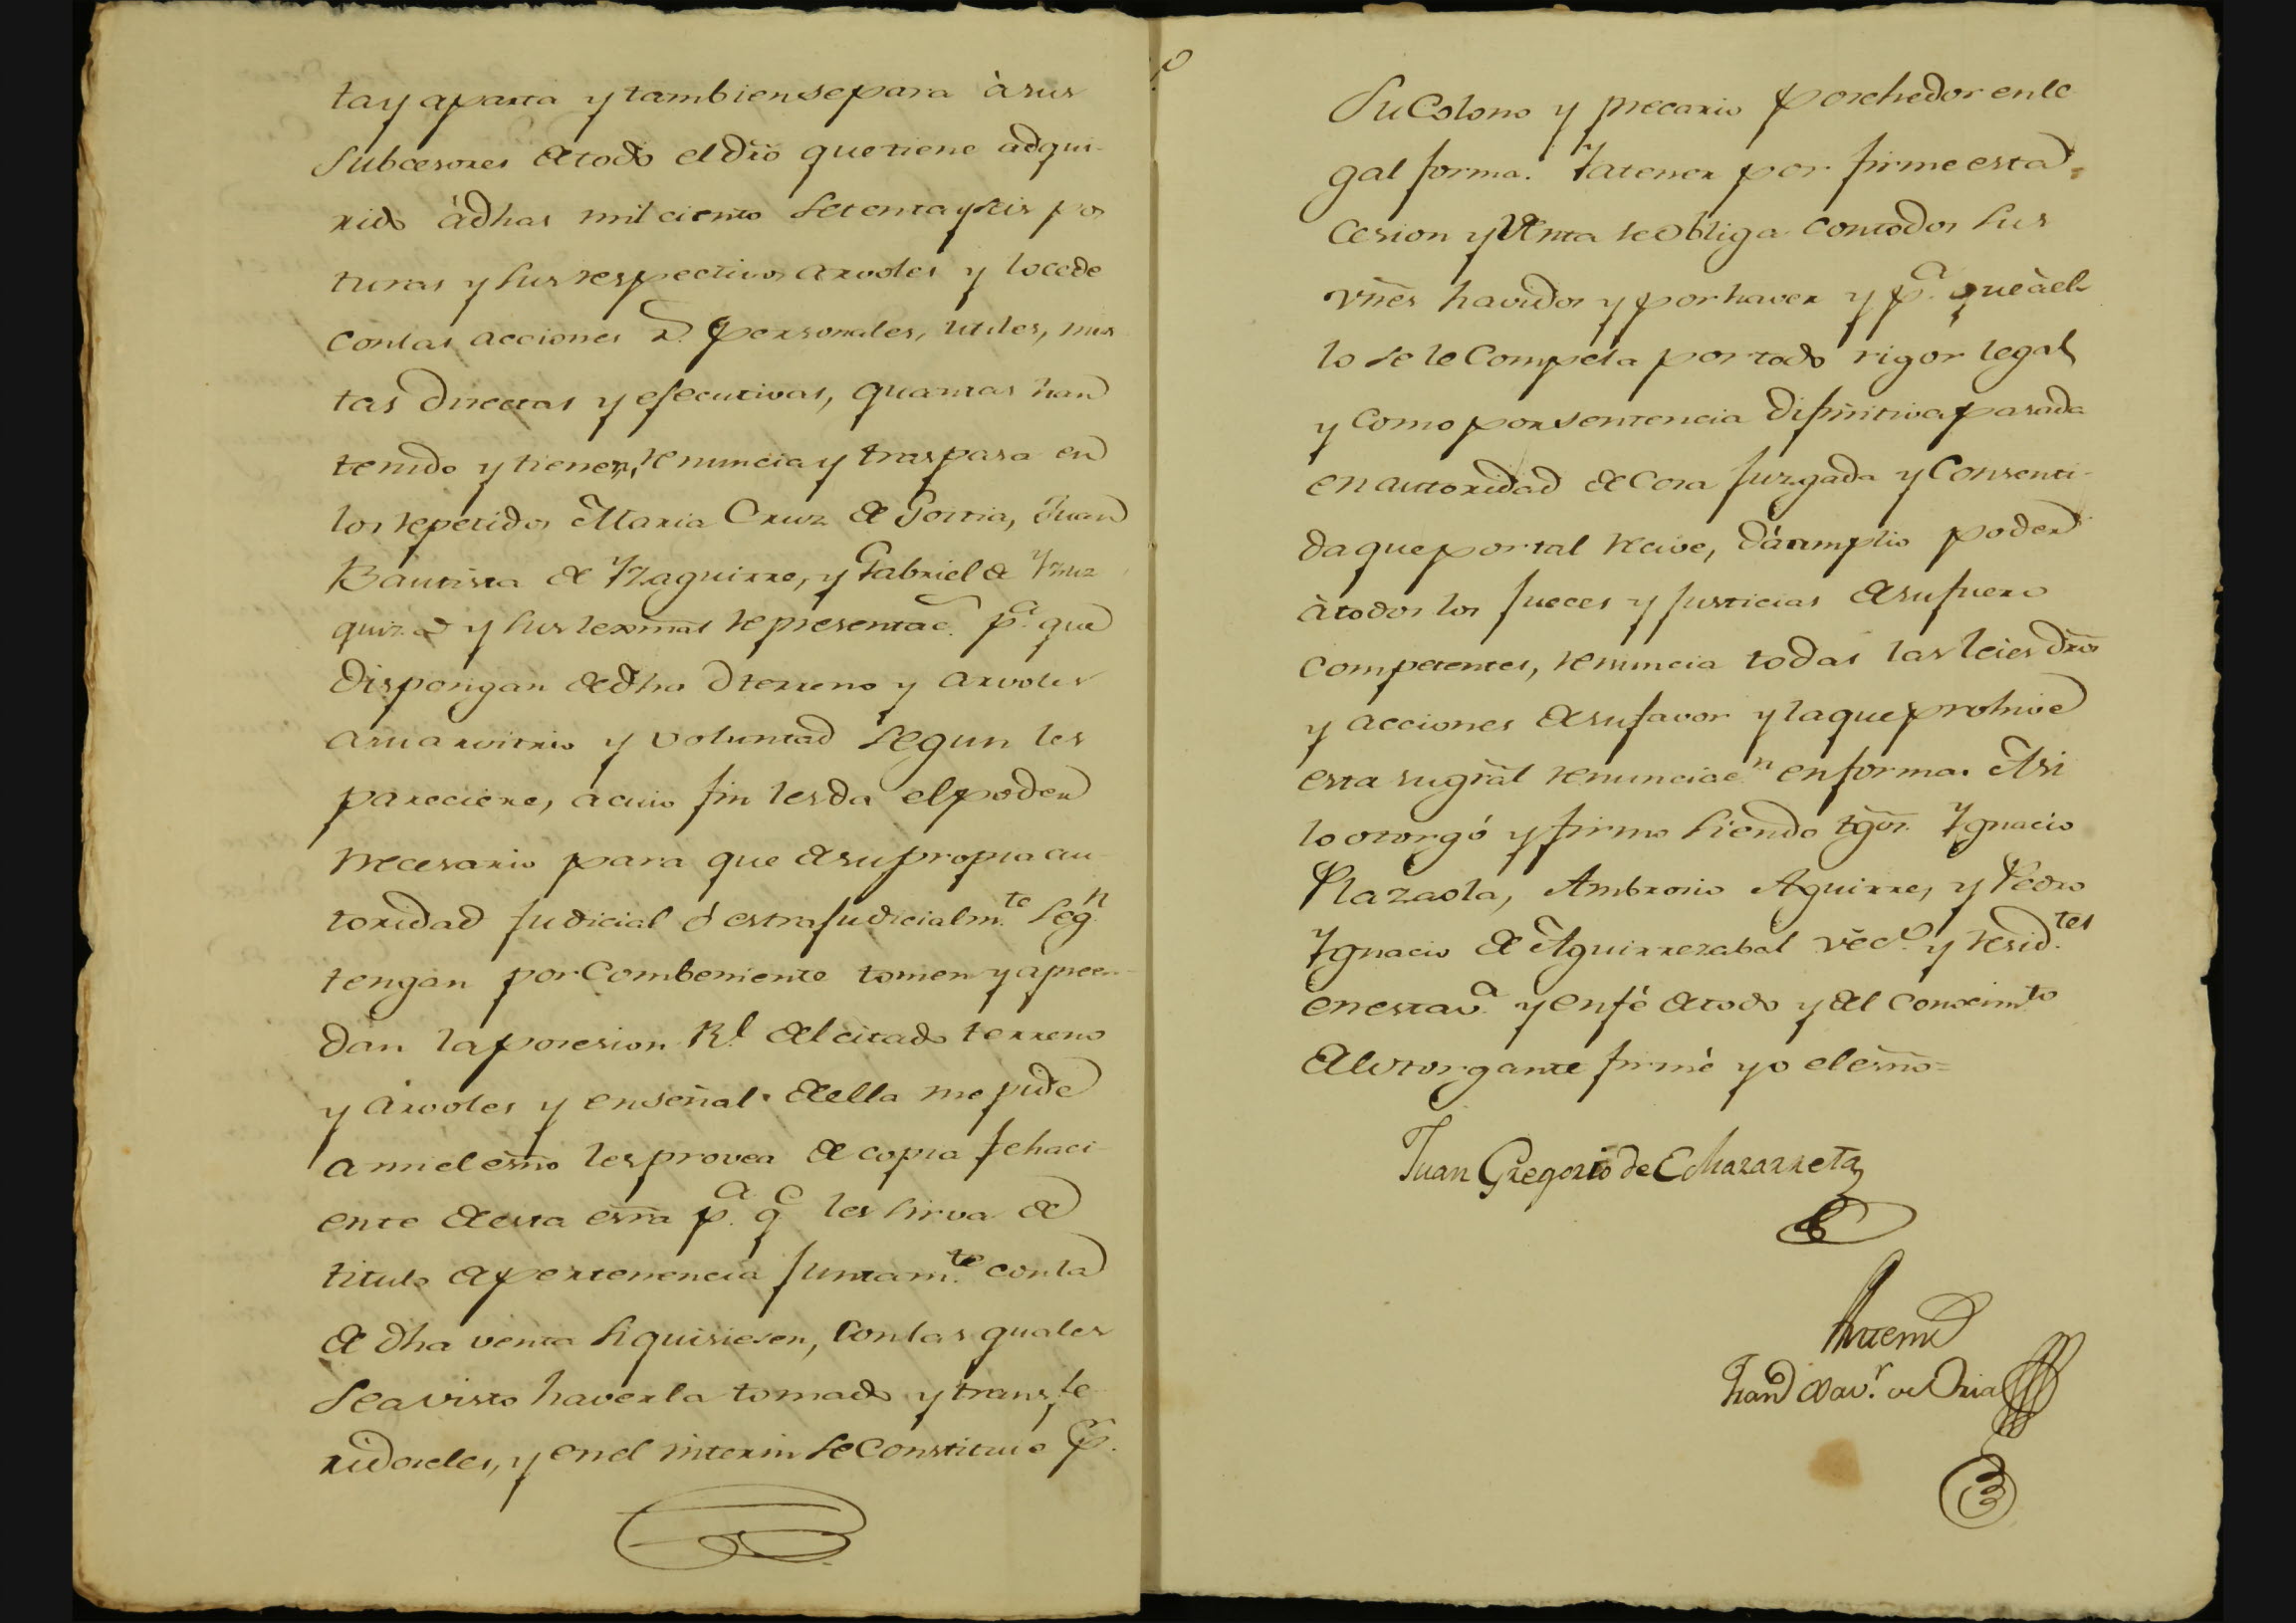 ta y aparta y tambien separa à sus
subcesores de todo el dr̃o que tiene adqui-
rido à dhas mil ciento setenta y seis pos
turas y sus respectivos arvoles y lo cede
con las acciones r.s personales, utiles, mix
tas directas y ejecutivas, quantas han
tenido y tienen, renuncia y traspasa en
los repetidos Maria Cruz de Portia, Juan
Bautista de Yzaguirre, y Gabriel de Ymuz
quiza y sus lexmas representac.s p.a que
dispongan de dho terreno y arvoles
a su arvitrio y voluntad segun les
pareciere, a cuio fin les da el poder
necesario para que de su propia au-
toridad judicial ó estrajudicialm.te seg.n
tengan por combeniente tomen y apreen-
dan la posesion R.l del citado terreno
y arvoles y en señal de ella me pide
a mi el esño les provea de copia fehaci-
ente de esta esr̃a p.a q.e les sirva de
titulo de pertenencia juntam.te con la
de dha venta si quisiesen, con las quales
sea visto haverla tomado y transfe
ridoseles, y en el interin se constituie p.r
su colono y precario poschedor en le
gal forma. Y a tener por firme esta
cesion y venta se obliga con todos sus
vñes havidos y por haver y p.a que à el-
lo se le compela por todo rigor legal
y como por sentencia difinitiva pasada
en autoridad de cosa juzgada y consenti-
da que por tal recive, dá amplio poder
à todos los jueces y justicias de su fuero
competentes, renuncia todas las leies dr̃os
y acciones de su favor y la que prohive
esta su gr̃al renunciac.n en forma. Asi
lo otorgó y firmo siendo tgos. Ygnacio
Plazaola, Ambrosio Aguirre, y Pedro
Ygnacio de Aguirrezabal vec.s y resid.tes
en esta v.a y en fé de todo y del conocim.to
del otorgante firmé yo el esño=
Juan Gregorio de Echazarreta
Antemi
Juan Xav.r de Oria